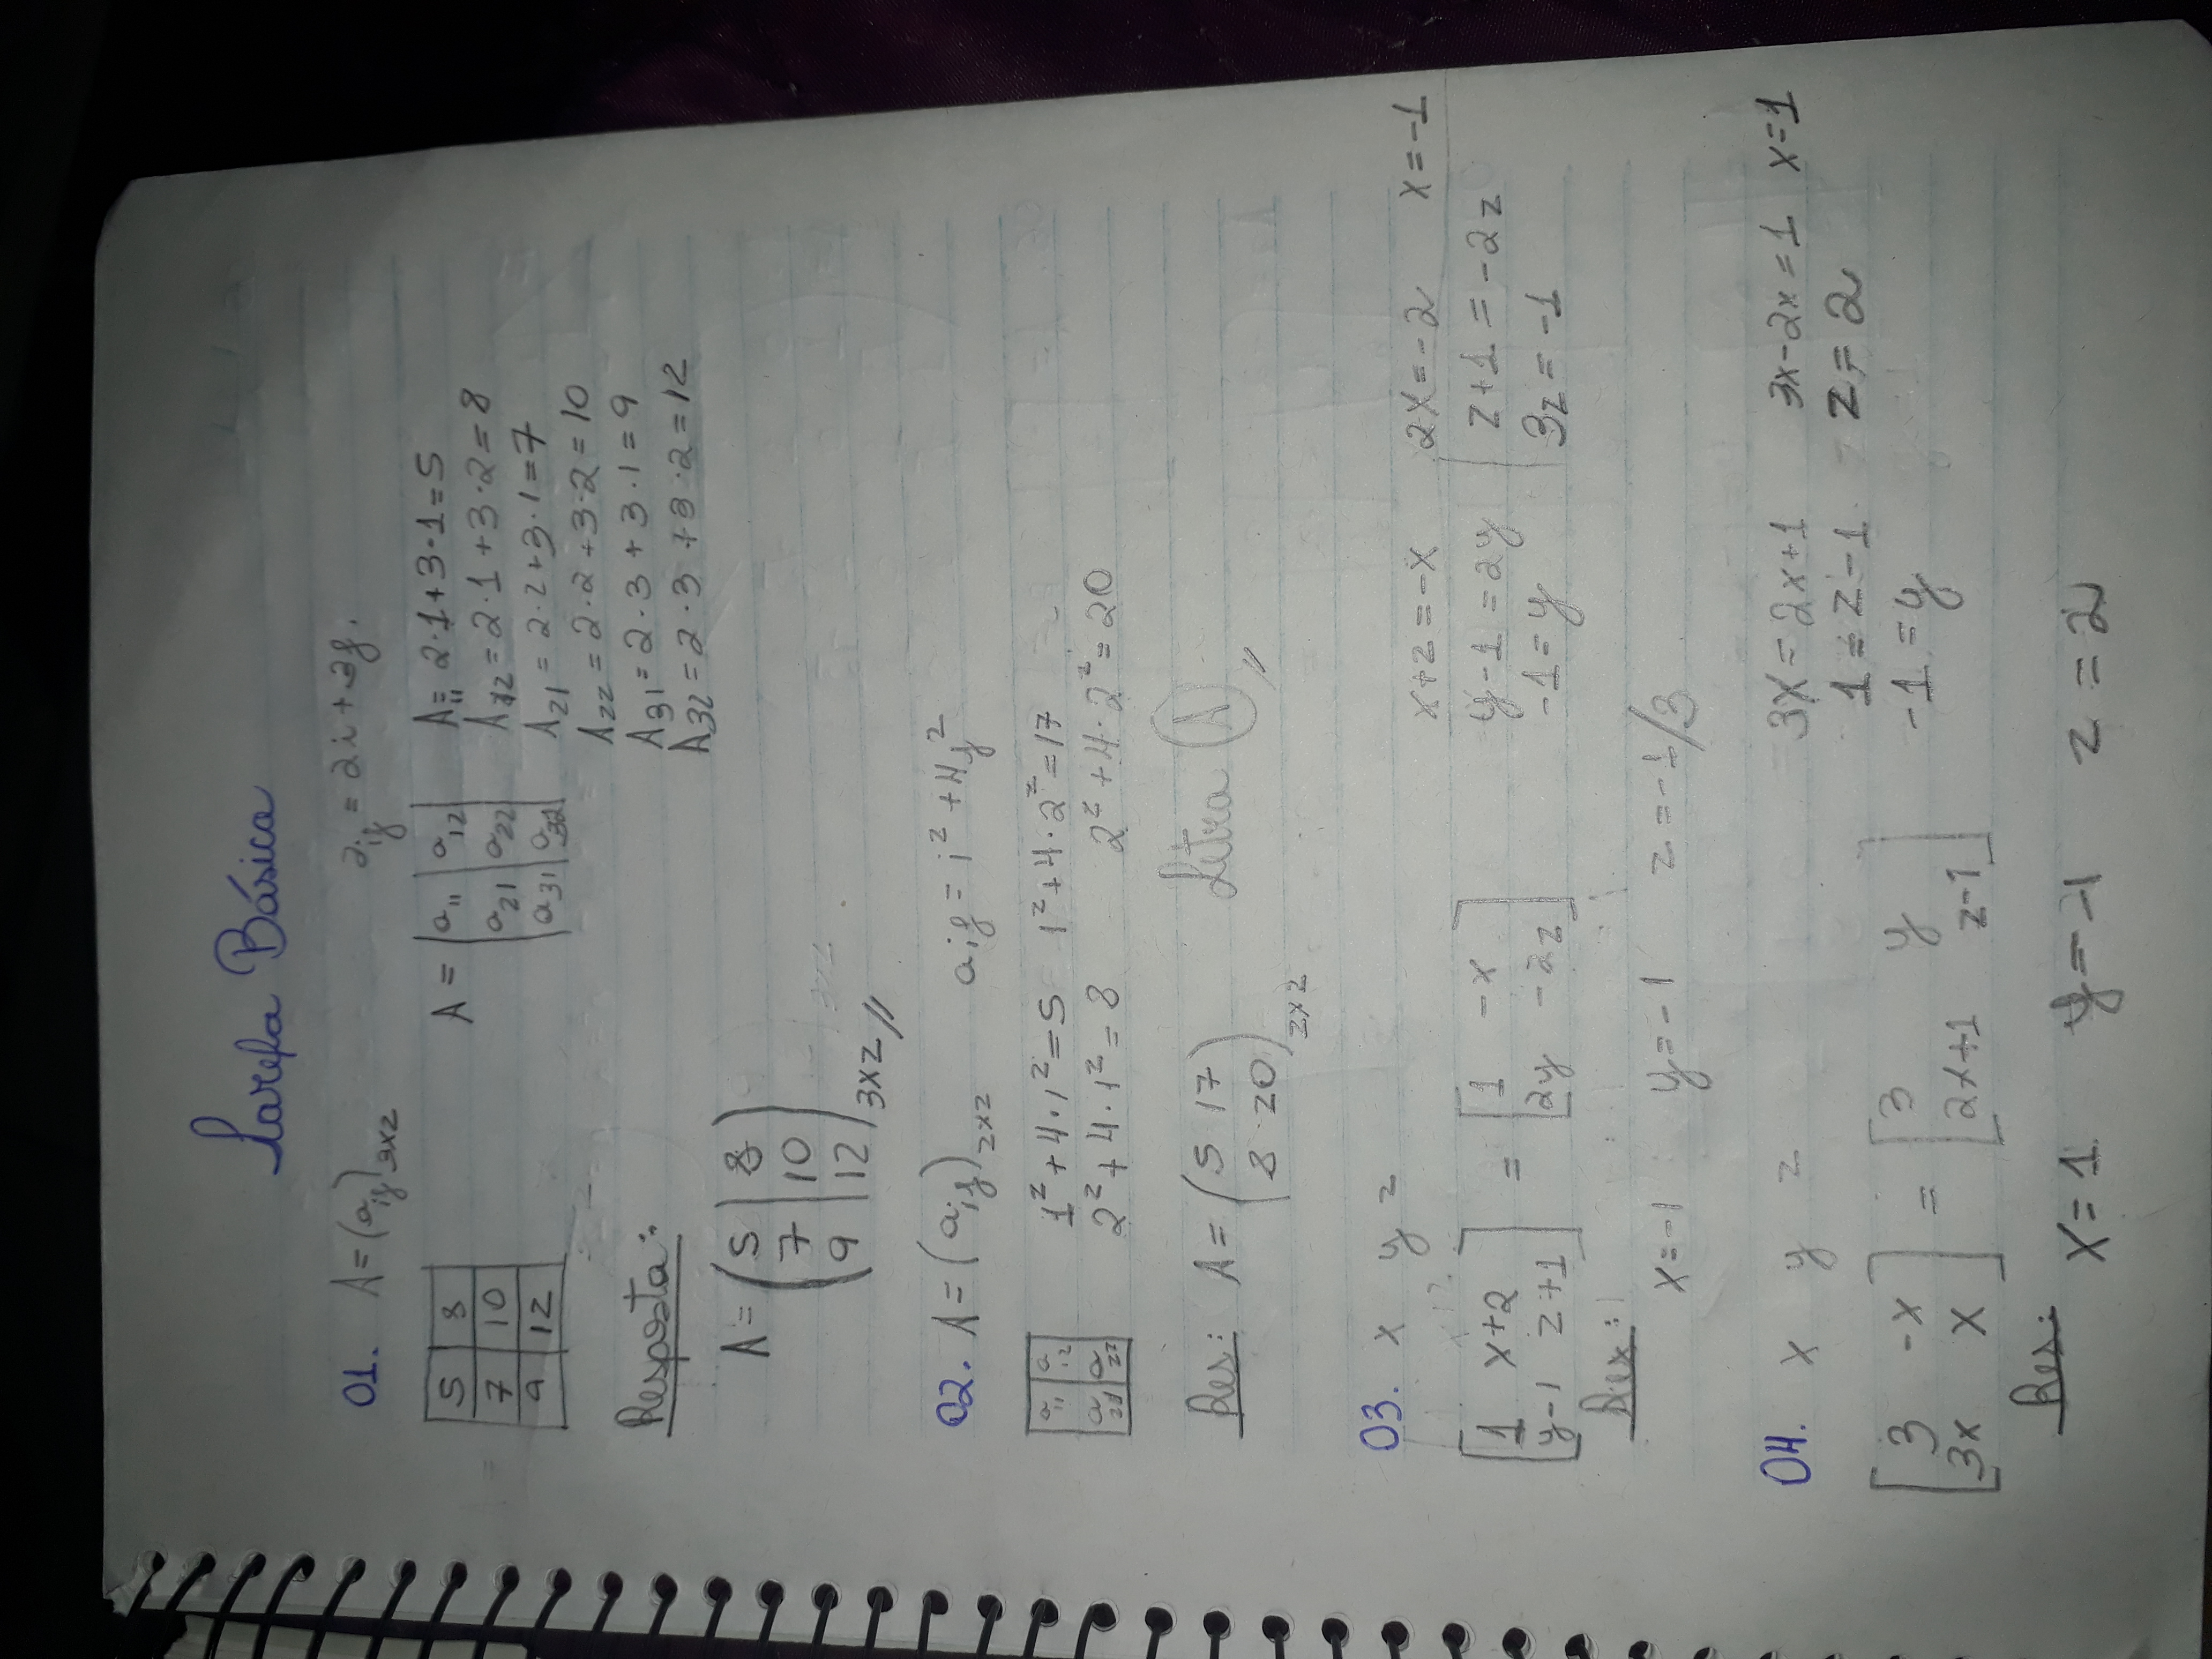 Tarefa Básica
01. A = (aij)3x2    aij = 2i + 3j.
5 8
7 10
9 12
A = a11 a12
a21 a22
a31 a32
A11 = 2·1+3·1=5
A12 = 2·1+3·2=8
A21 = 2·2+3·1=7
A22 = 2·2+3·2=10
A31 = 2·3+3·1=9
A32 = 2·3+3·2=12
Resposta:
A = (5 8
7 10
9 12) 3x2 //
02. A = (aij) 2x2    aij = i² + 4j²
a11 a12
a21 a22
1² + 4·1² = 5    1² + 4·2² = 17
2² + 4·1² = 8    2² + 4·2² = 20
Res: A = (5 17
8 20) 2x2    Letra (A) //
03. x y z
[1 x+2
y-1 z+1] = [1 -x
2y -2z]
x+2=-x    2x=-2    x=-1
y-1=2y    z+1=-2z
-1=y    3z=-1
Res:
x=-1    y=-1    z=-1/3
04. x y z
[3 -x
3x x] = [3 y
2x+1 z-1]
3x=2x+1    3x-2x=1    x=1
1=z-1    z=2
-1=y
Res:
x=1    y=-1    z=2